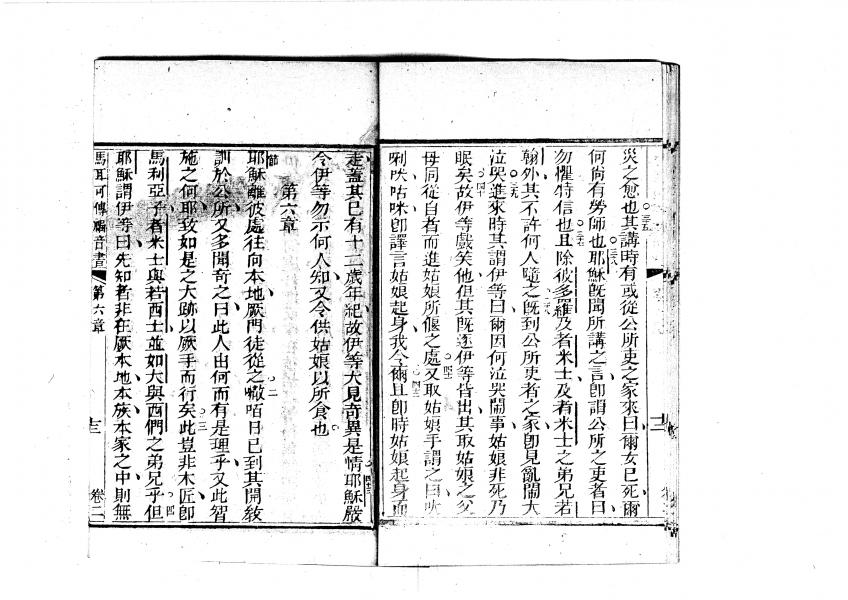 災之愈也其講時有或從公所吏之家來曰爾女已死爾
何尚有勞師也耶穌既聞所講之言即謂公所之吏者曰
勿懼特信也且除彼多羅及者米士及者米士之弟兄若
翰外其不許何人隨之既到公所吏者之家即見亂鬧大
泣哭進來時其謂伊等曰爾因何泣哭鬧事姑娘非死乃
眠矣故伊等戲笑他但其既逐伊等皆出其取姑娘之父
母同從自者而進姑娘所偃之處又取姑娘手謂之曰
唎咊咕咪即譯言姑娘起身我令爾且即時姑娘起身而
十二
走蓋其已有十二歲年紀故伊等大見奇異是情耶穌嚴
令伊等勿示何人知又令供姑娘以所食也
第六章
節耶穌離彼處往向本地厥門徒從之嗽咟日已到其開教
訓於公所又多聞奇之曰此人出何而有是理乎又此智
施之何耶致如是之大跡以厥手而行矣此豈非木匠即
馬利亞子者米士與若西士並如大與西們之弟兄乎但
耶穌謂伊等曰先知者非在厥本地本族本家之中則無
馬耳可傳福音書 第六章 十三 卷二